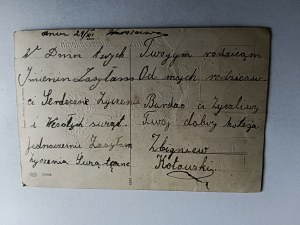 dnia 24/XII Warszawa
W Dniu twych
Imienin Zasyłam
ci Serdeczne Życzenia
i Wesołych świąt
jednocześnie Zasyłam
życzenia
Twojym rodzicom
Od mych rodziców
Bardzo ci Życzliwy
Twój dobry kolega
Zbigniew
Kotowski